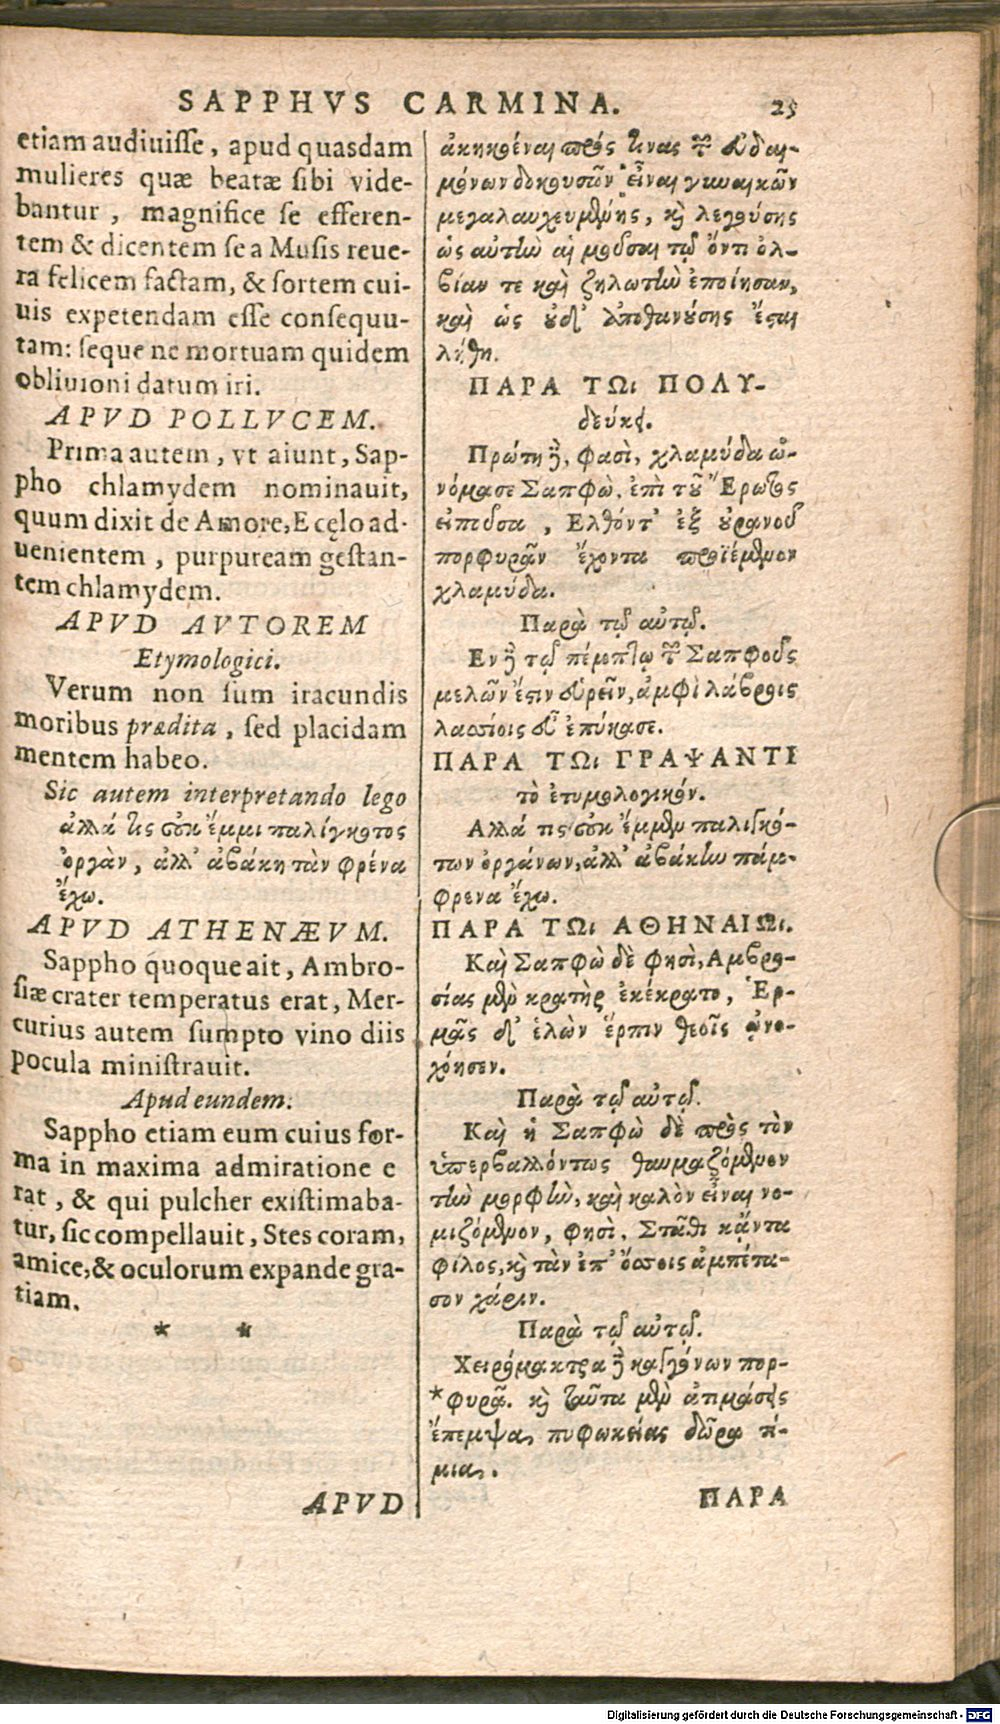 SAPPHVS CARMINA. 25
etiam audiuisse, apud quasdam
mulieres quæ beatæ sibi vide-
bantur, magnifice se efferen-
tem & dicentem se a Musis reue-
ra felicem factam, & sortem cui-
uis expetendam esse consequu-
tam: seque ne mortuam quidem
obliuioni datum iri.
APVD POLLVCEM.
Prima autem, vt aiunt, Sap-
pho chlamydem nominauit,
quum dixit de Amore, E cęlo ad-
uenientem, purpuream gestan-
tem chlamydem.
APVD AVTOREM
Etymologici.
Verum non sum iracundis
moribus prædita, sed placidam
mentem habeo.
Sic autem interpretando lego
ἀλλά τις οὐκ ἔμμι παλίγκοτος
ὀργὰν, ἀλλ' ἀβάκη τὰν φρένα
ἔχω.
APVD ATHENÆVM.
Sappho quoque ait, Ambro-
siæ crater temperatus erat, Mer-
curius autem sumpto vino diis
pocula ministrauit.
Apud eundem.
Sappho etiam eum cuius for-
ma in maxima admiratione e
rat, & qui pulcher existimaba-
tur, sic compellauit, Stes coram,
amice, & oculorum expande gra-
tiam.
* *
APVD
ἀκηκοέναι πρός τινας τῶν εὐδαι-
μόνων δοκουσῶν εἶναι γυναικῶν
μεγαλαυχευμένης, καὶ λεγούσης
ὡς αὐτὴν αἱ μοῦσαι τῷ ὄντι ὀλ-
βίαν τε καὶ ζηλωτὴν ἐποίησαν,
καὶ ὡς οὐδ' ἀποθανούσης ἔσται
λήθη.
ΠΑΡΑ ΤΩι ΠΟΛΥ-
δεύκει.
Πρώτη δὲ, φασὶ, χλαμύδα ὠ-
νόμασε Σαπφὼ, ἐπὶ τοῦ Ἔρωτος
εἰποῦσα, Ελθόντ' ἐξ οὐρανοῦ
πορφυρᾶν ἔχοντα προϊέμενον
χλαμύδα.
Παρὰ τῷ αὐτῷ.
Εν δὲ τῷ πέμπτῳ τῶν Σαπφοῦς
μελῶν ἔστιν εὑρεῖν, ἀμφὶ λάβροις
λασίοις εὖ ἐπύκασε.
ΠΑΡΑ ΤΩι ΓΡΑΨΑΝΤΙ
τὸ ἐτυμολογικόν.
Αλλά τις οὐκ ἔμμεν παλιγκό-
των ὀργάνων, ἀλλ' ἀβάκην πάμ-
φρενα ἔχω.
ΠΑΡΑ ΤΩι ΑΘΗΝΑΙΩι.
Καὶ Σαπφὼ δὲ φησὶ, Αμβρο-
σίας μὲν κρατὴρ ἐκέκρατο, Ἑρ-
μᾶς δ' ἑλὼν ἕρπιν θεοῖς ᾠνο-
χόησεν.
Παρὰ τῷ αὐτῷ.
Καὶ ἡ Σαπφὼ δὲ πρὸς τὸν
ὑπερβαλλόντως θαυμαζόμενον
τὴν μορφὴν, καὶ καλὸν εἶναι νο-
μιζόμενον, φησὶ, Στᾶθι κᾄντα
φίλος, καὶ τὰν ἐπ' ὄσσοις ἀμπέτα-
σον χάριν.
Παρὰ τῷ αὐτῷ.
Χειρόμακτρα δὲ καγγόνων πορ-
*φυρᾶ. καὶ ταῦτα μὲν ἀτιμάσεις
ἔπεμψαι πυφωκείας δῶρα τί-
μιαι.
ΠΑΡΑ
Digitalisierung gefördert durch die Deutsche Forschungsgemeinschaft - DFG